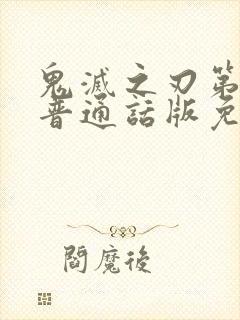 鬼滅之刃第
普通話版免
閻魔後